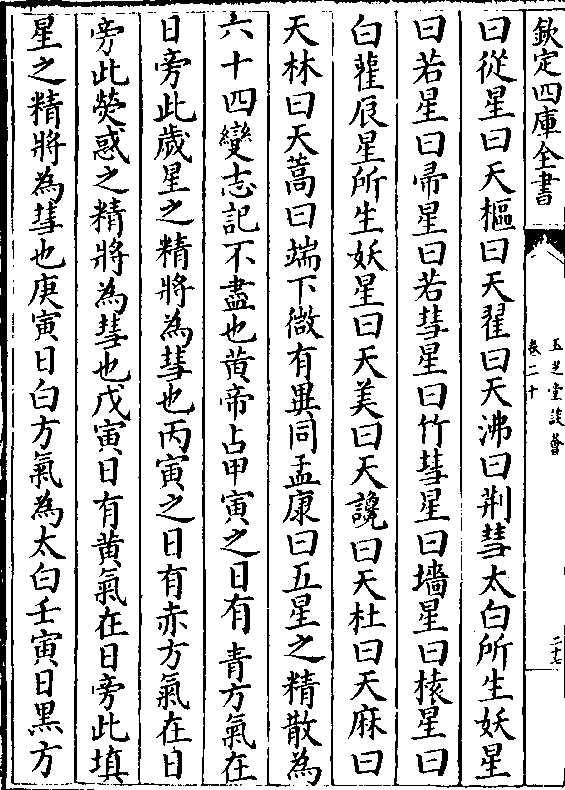 欽定四庫全書
玉芝堂談薈
卷二十
二十七
曰從星曰天樞曰天翟曰天沸曰荆彗太白所生妖星
曰若星曰帚星曰若彗星曰竹彗星曰墻星曰榬星曰
白雚辰星所生妖星曰天美曰天讒曰天杜曰天麻曰
天林曰天蒿曰端下微有異同孟康曰五星之精散為
六十四變志記不盡也黄帝占甲寅之日有青方氣在
日旁此歲星之精將為彗也丙寅之日有赤方氣在日
旁此熒惑之精將為彗也戊寅日有黄氣在日旁此填
星之精將為彗也庚寅日白方氣為太白壬寅日黑方